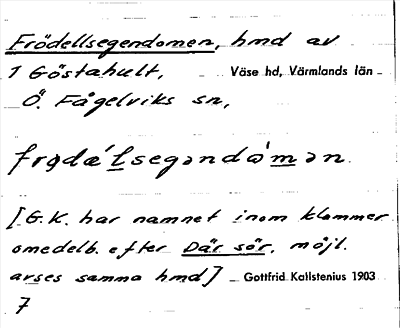 Frödellsegendomen, hmd av
1 Göstahult, Väse hd, Värmlands län
Ö. Fågelviks sn,
frødæ´lsegəndω`mən
[G.K. har namnet inom klammer
omedelb. efter Där sör, möjl.
avses samma hmd] Gottfrid Kallstenius 1903
7